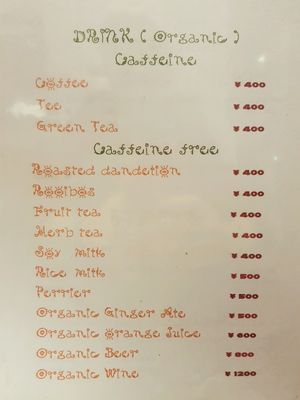 DRINK ( Organic )
Caffeine
Coffee ¥ 400
Tee ¥ 400
Green Tea ¥ 400
Caffeine free
Roasted dandetion ¥ 400
Rooibos ¥ 400
Fruit tea ¥ 400
Herb tea ¥ 400
Soy milk ¥ 400
Rice milk ¥ 500
Perrier ¥ 500
Organic Ginger Ale ¥ 500
Organic Orange Juice ¥ 600
Organic Beer ¥ 800
Organic Wine ¥ 1200